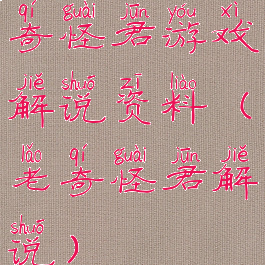 qí guài jūn yóu xì
奇怪君游戏
jiě shuō zī liào
解说资料（
lǎo qí guài jūn jiě
老奇怪君解
shuō
说）